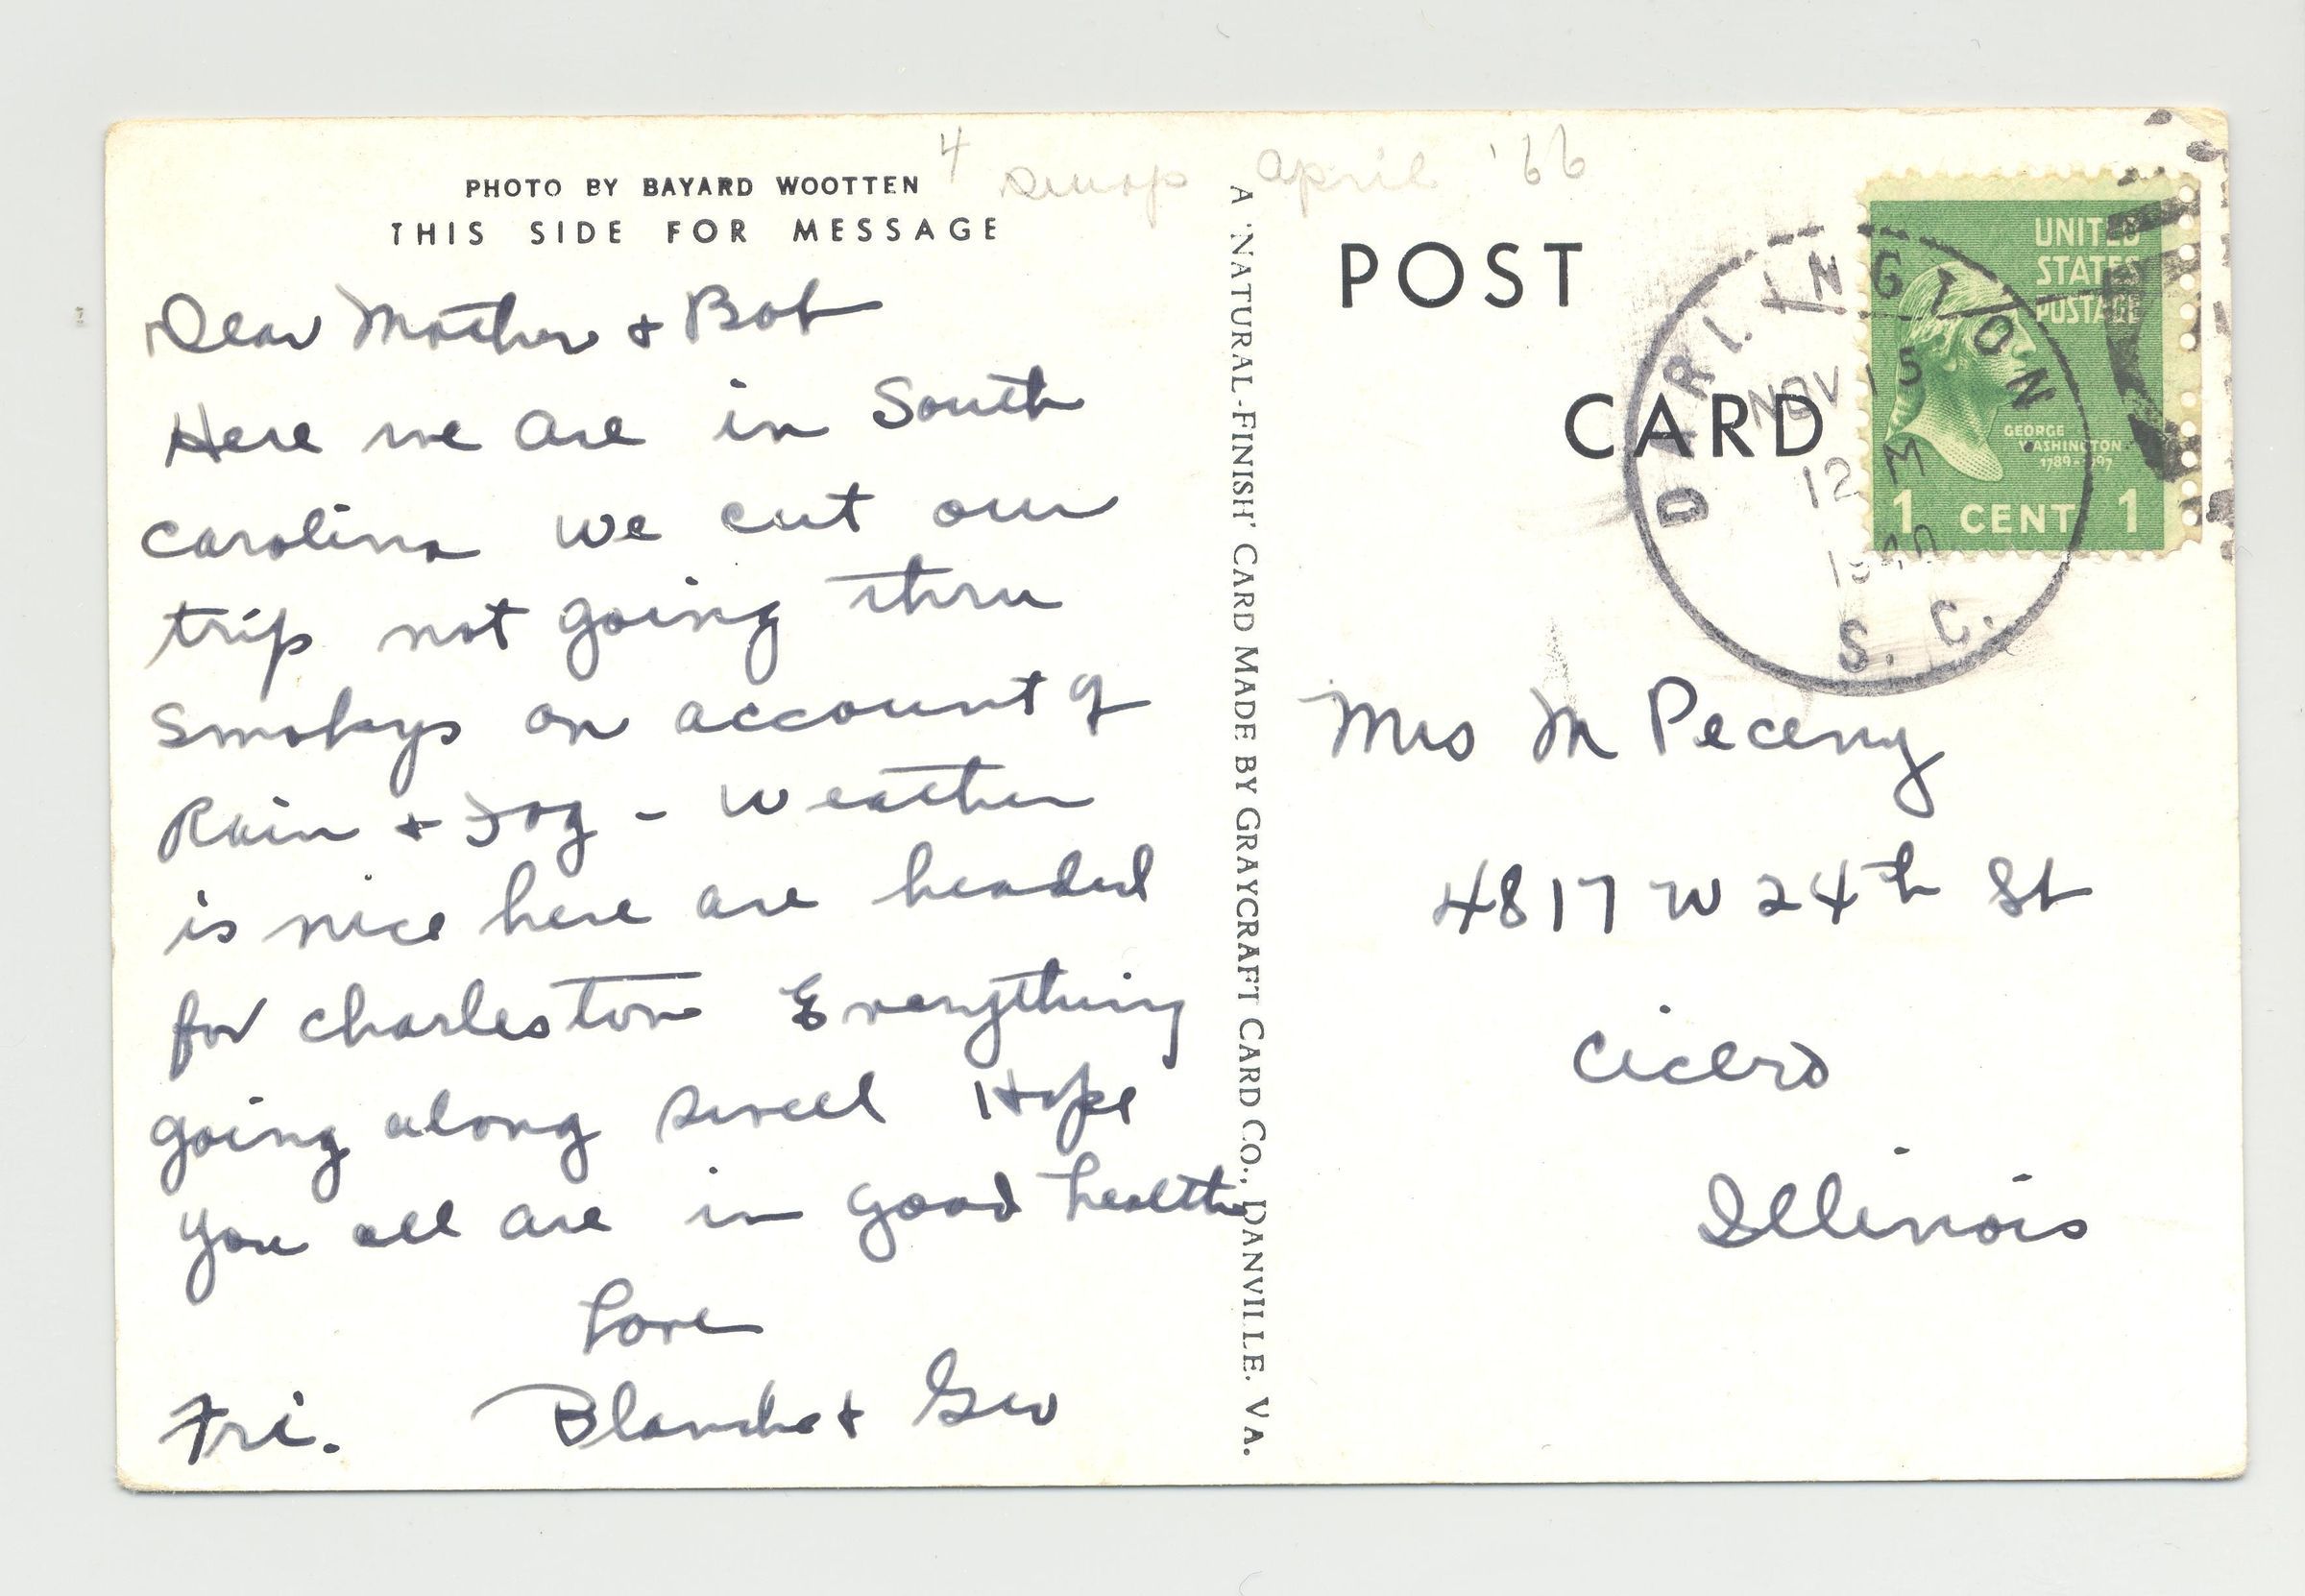 4 swap april '66
PHOTO BY BAYARD WOOTTEN
THIS SIDE FOR MESSAGE
Dear Mother & Bob
Here we are in South
Carolina we cut our
trip not going thru
Smokys on account of
Rain & Fog - weather
is nice here are headed
for Charleston Everything
going along swell Hope
you all are in good health
Love
Blanche & Geo
Fri.
A 'NATURAL-FINISH' CARD MADE BY GRAYCRAFT CARD CO., DANVILLE. VA.
POST
CARD
DARLINGTON
NOV 15
12 M
1940
S. C.
UNITED
STATES
POSTAGE
GEORGE
WASHINGTON
1789-1797
1 CENT 1
Mrs M Peceny
4817 W 24th St
Cicero
Illinois